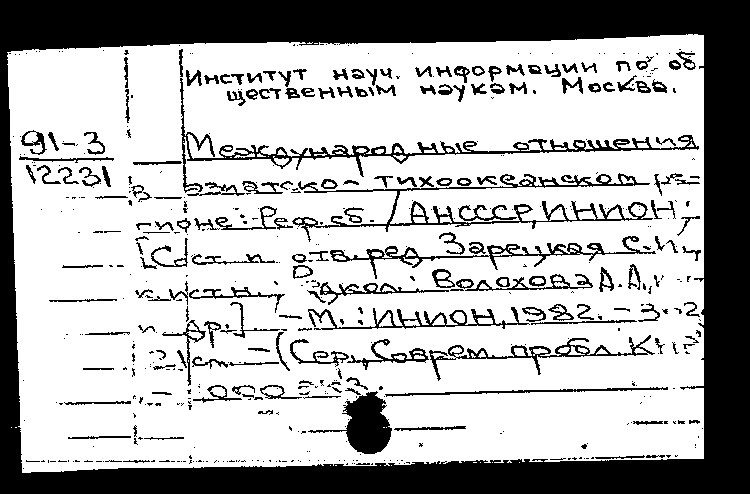 Институт науч. информации по об-
щественным наукам. Москва.
91-3
12231
Международные отношения
в азиатско-тихоокеанском ре-
гионе: Реф. сб. / АН СССР, ИНИОН;
[Сост. и отв. ред. Зарецкая С.И.,
к.ист.н.; Редкол.: Волохова А.А.,
и др.] - М.: ИНИОН, 1982. -
21 см. - (Сер., Соврем. пробл.
000 экз.